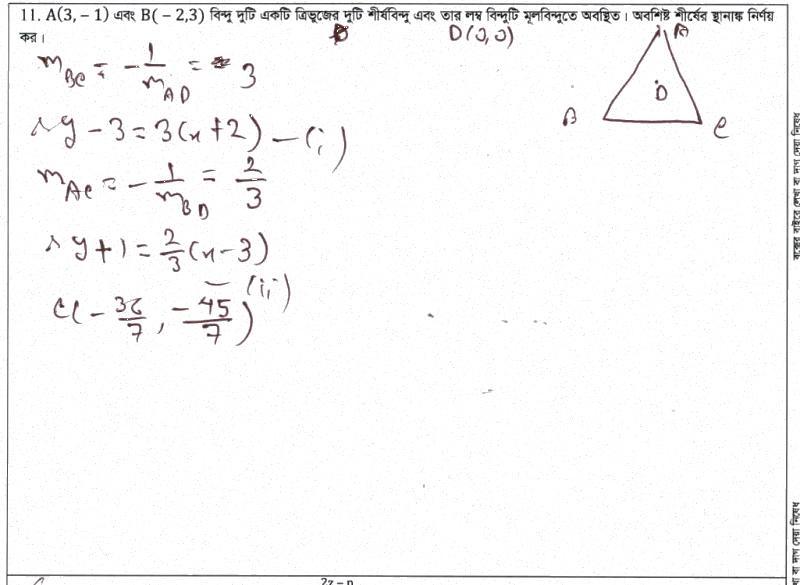 11. A(3, – 1) এবং B( – 2,3) বিন্দু দুটি একটি ত্রিভুজের দুটি শীর্ষবিন্দু এবং তার লম্ব বিন্দুটি মূলবিন্দুতে অবস্থিত। অবশিষ্ট শীর্ষের স্থানাঙ্ক নির্ণয়
কর।
D(0,0)
A
B
D
C
m_BC = - 1/m_AD = 3
∴ y - 3 = 3(x + 2) - (i)
m_AC = - 1/m_BD = 2/3
∴ y + 1 = 2/3 (x - 3)
- (ii)
C(- 36/7, -45/7)
বক্সের বাইরে লেখা বা দাগ দেয়া নিষেধ
বা দাগ দেয়া নিষেধ